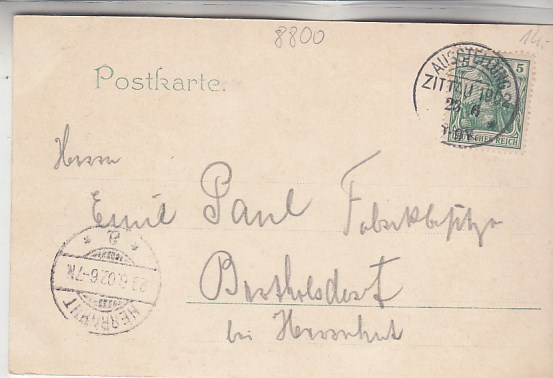 8800
14.-
Postkarte.
AUSSTELLUNG
ZITTAU 1902
23 6
5
DEUTSCHES REICH
Herrn
Emil Paul Fabrikbesitzer
Berthelsdorf
bei Herrnhut
HERRNHUT
23.6.02.6-7N.
a